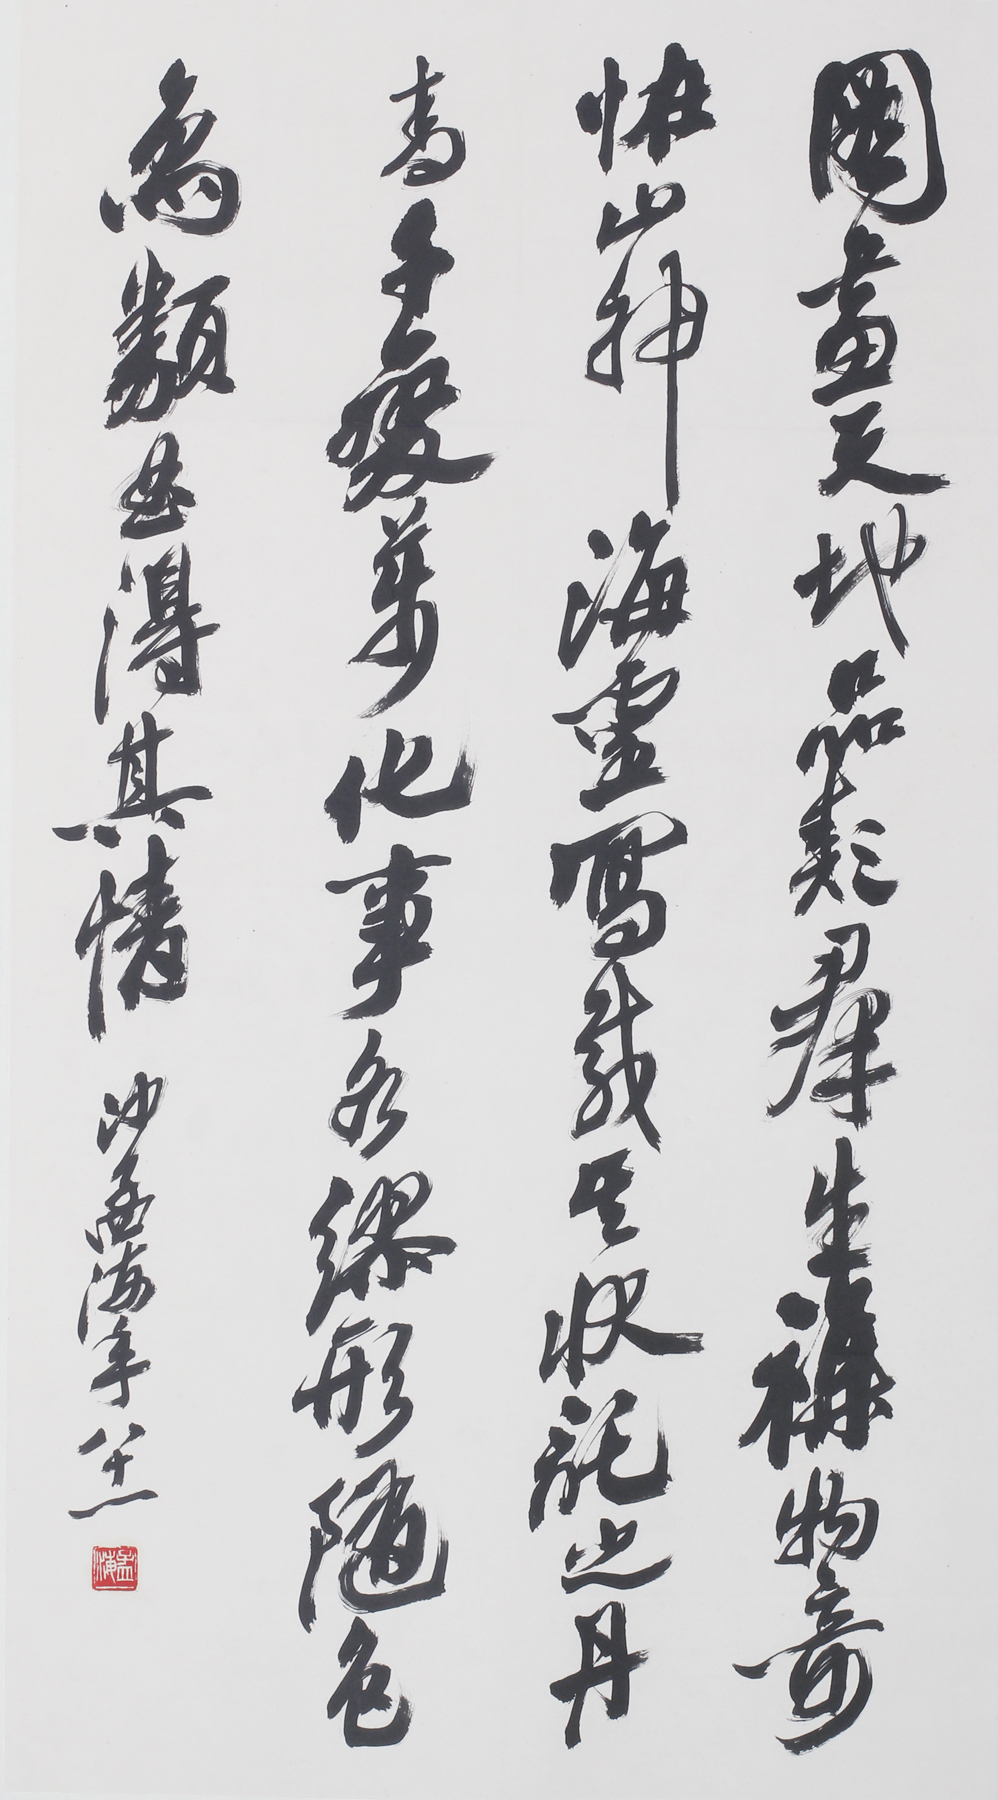 圖畫天地品類羣生襍物奇
恠山神海靈寫載其状託之丹
青千變萬化事各繆形隨色
象類曲得其情 沙孟海年八十
孟海